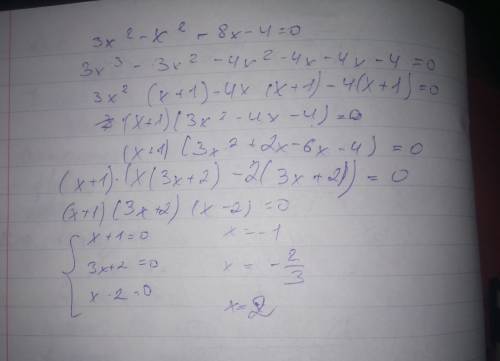 3x² - x² - 8x - 4 = 0
3x³ - 3x² - 4x² - 4x - 4x - 4 = 0
3x² (x+1) - 4x (x+1) - 4(x+1) = 0
(x+1)(3x² - 4x - 4) = 0
(x+1) (3x² + 2x - 6x - 4) = 0
(x+1)·(x(3x+2) - 2(3x+2)) = 0
(x+1)(3x+2)(x-2) = 0
x+1=0 x=-1
3x+2=0 x=-2/3
x-2=0 x=2